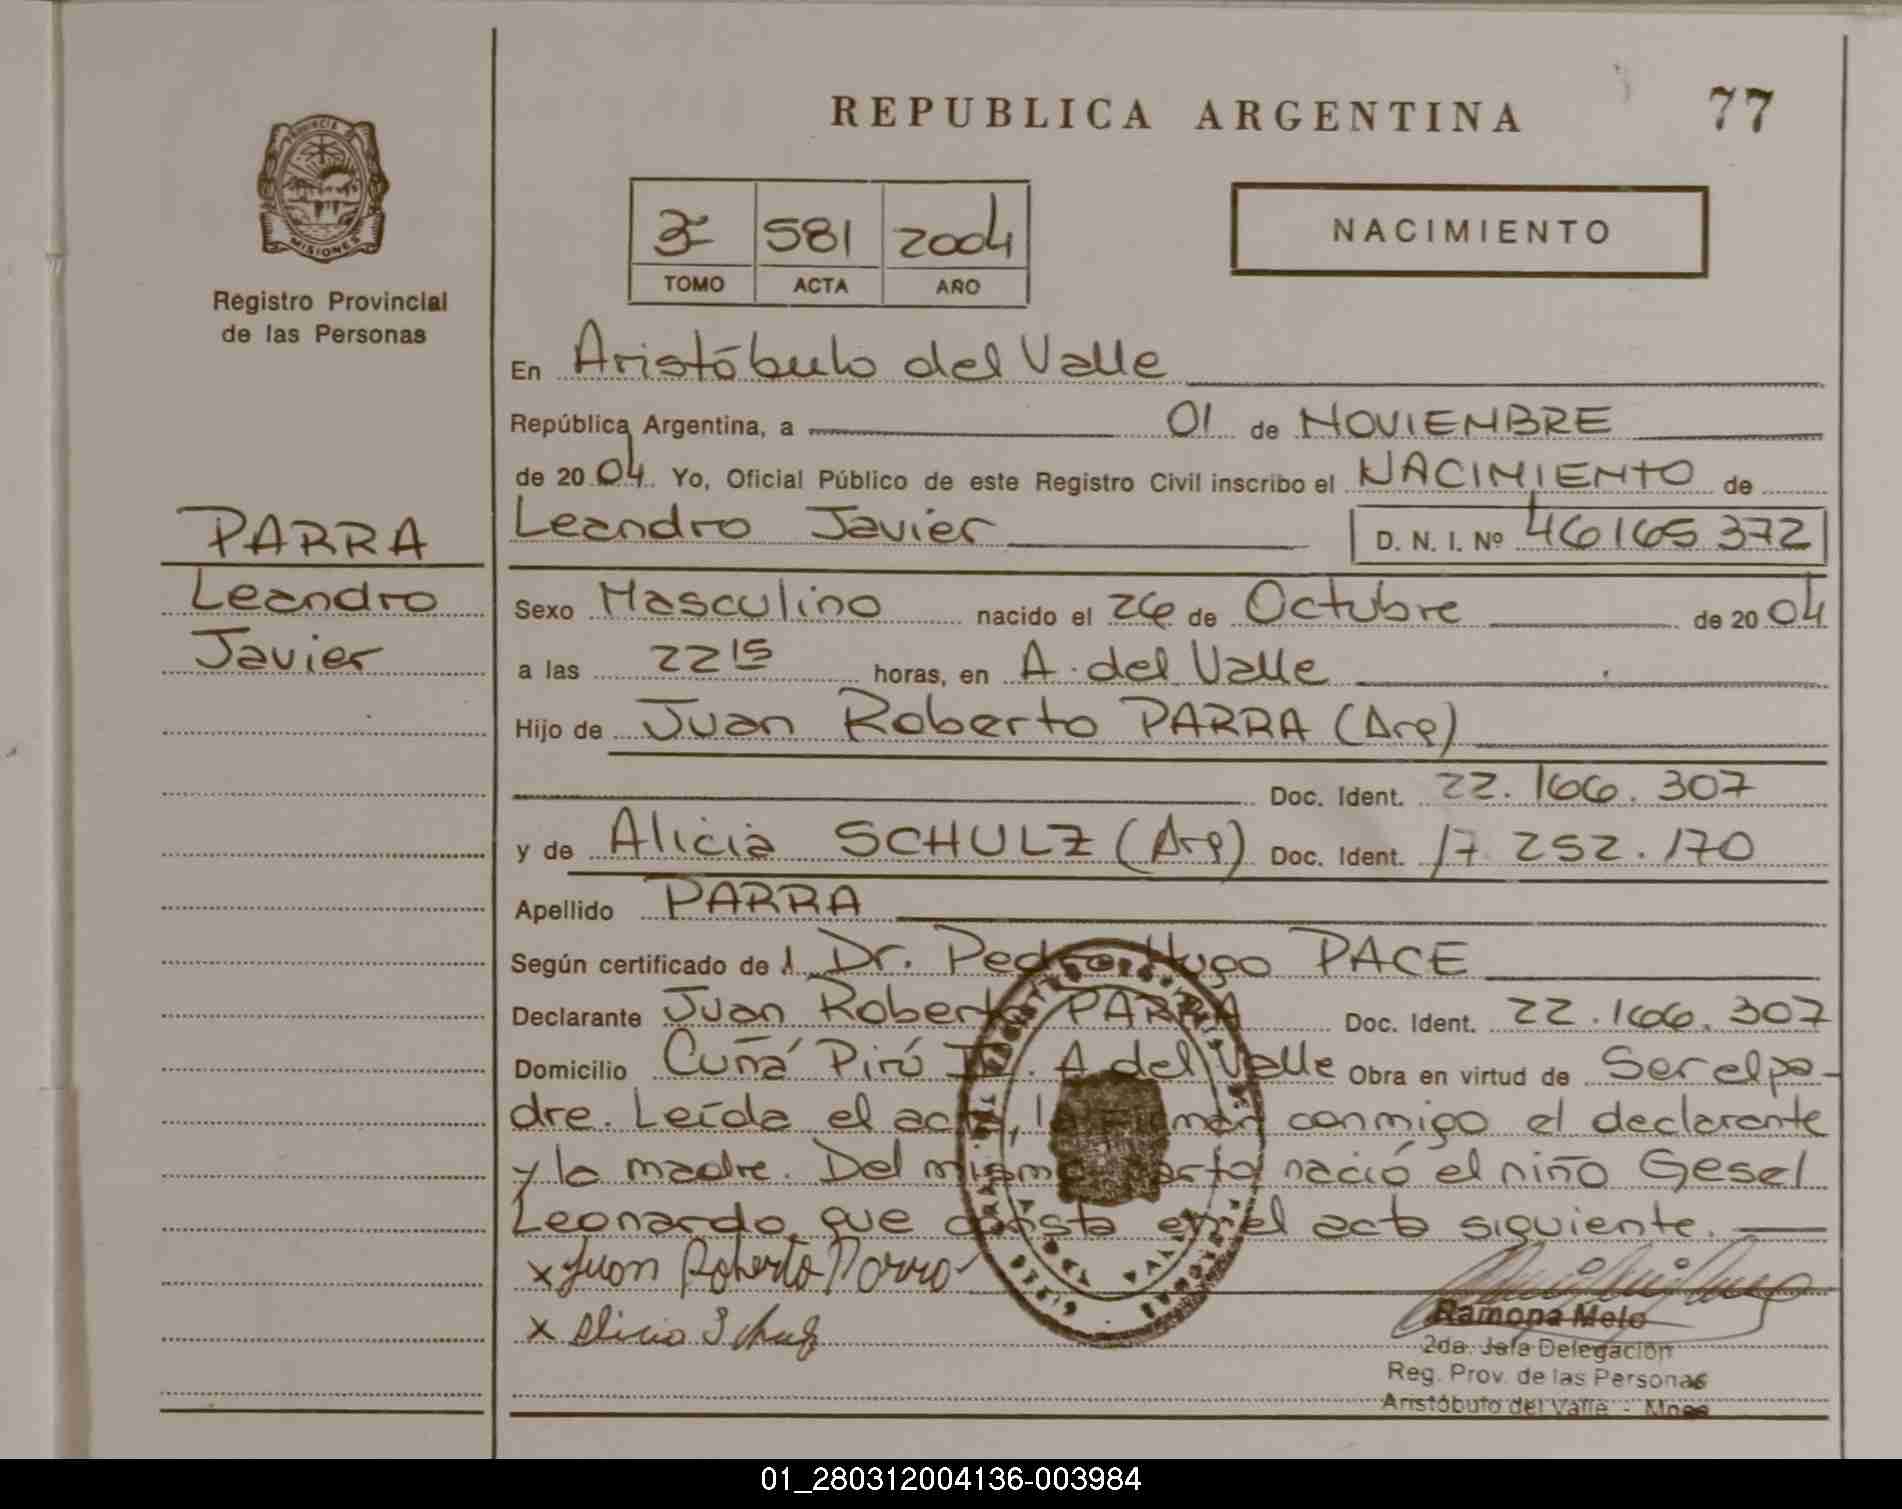 REPUBLICA ARGENTINA
77
PROVINCIA DE
MISIONES
Registro Provincial
de las Personas
581 2004
TOMO ACTA AÑO
NACIMIENTO
En Aristóbulo del Valle
República Argentina, a 01 de NOVIEMBRE
de 2004. Yo, Oficial Público de este Registro Civil inscribo el NACIMIENTO de
PARRA
Leandro
Javier
Leandro Javier D. N. I. Nº 46165372
Sexo Masculino nacido el 26 de Octubre de 2004
a las 22 15 horas, en A. del Valle
Hijo de Juan Roberto PARRA (Arg)
Doc. Ident. 22.166.307
y de Alicia SCHULZ (Arg) Doc. Ident. 17 252.170
Apellido PARRA
Según certificado de l Dr. Pedro Hugo PACE
Declarante Juan Roberto PARRA Doc. Ident. 22.166.307
Domicilio Cuñá Pirú A del Valle Obra en virtud de Ser el pa-
dre. Leída el acta, la firman conmigo el declarante
y la madre. Del mismo parto nació el niño Gesel
Leonardo que consta en el acta siguiente.
x Juan Roberto Parra
x Alicia Schulz
Ramona Melo
2da. Jefa Delegación
Reg. Prov. de las Personas
Aristóbulo del Valle - Mnes
01_280312004136-003984